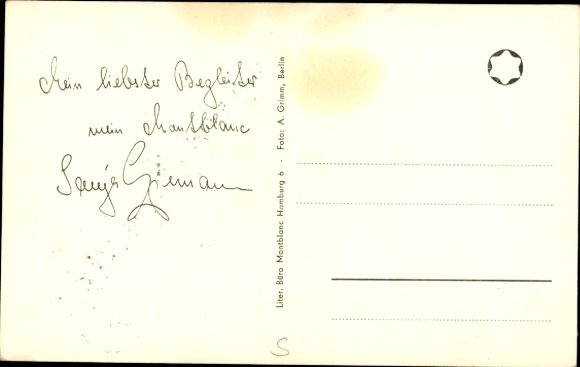 Mein liebster Begleiter
mein Montblanc
Sonja Ziemann
Liter. Büro Montblanc Hamburg 6 · Foto: A. Grimm, Berlin
S